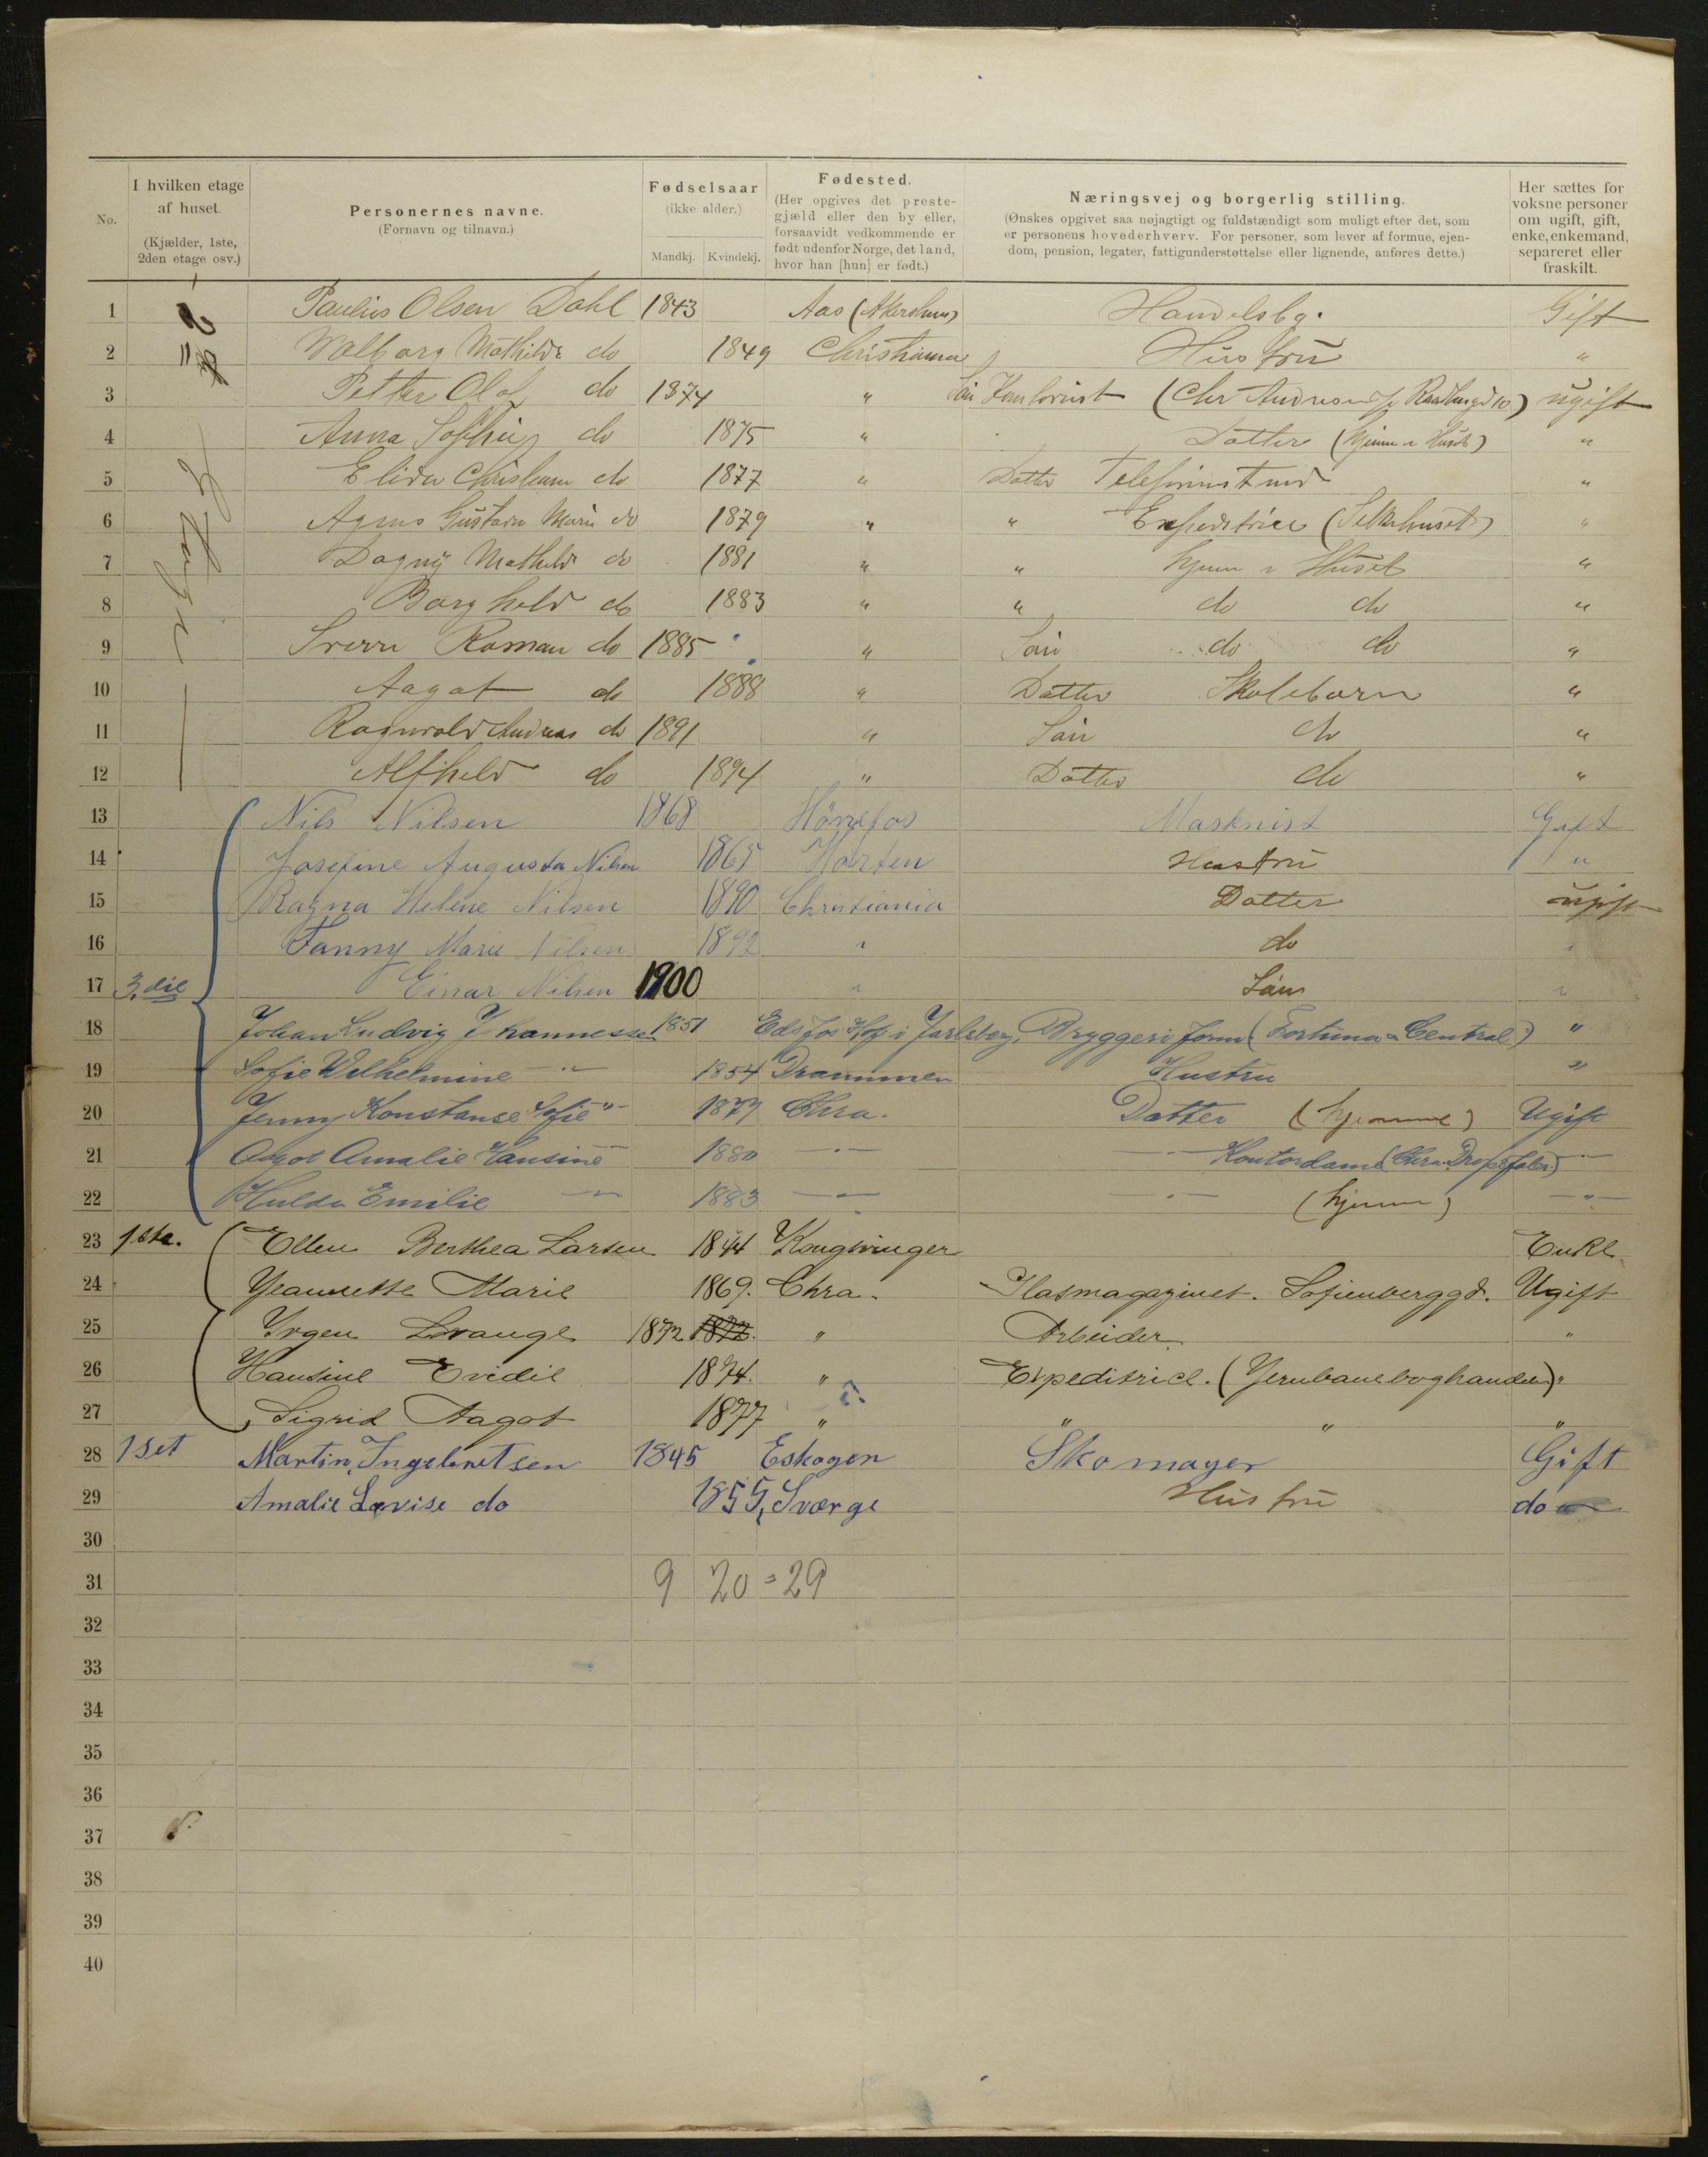 No.
I hvilken etage af huset. (Kjælder, 1ste, 2den etage osv.)
Personernes navne. (Fornavn og tilnavn.)
Fødselsaar (ikke alder.) Mandkj. Kvindekj.
Fødested. (Her opgives det prestegjæld eller den by eller, forsaavidt vedkommende er født udenfor Norge, det land, hvor han [hun] er født.)
Næringsvej og borgerlig stilling. (Ønskes opgivet saa nøjagtigt og fuldstændigt som muligt efter det, som er personens hovederhverv. For personer, som lever af formue, ejendom, pension, legater, fattigunderstøttelse eller lignende, anføres dette.)
Her sættes for voksne personer om ugift, gift, enke, enkemand, separeret eller fraskilt.
2 Etage
1 Paulius Olsen Dahl 1843 Aas (Akershus) Handelsbg. Gift
2 Walborg Mathilde do 1849 Christiania Hustru "
3 Petter Olaf do 1874 " Søn Kontorist (Chr Andresen Raadhusgd 10) ugift
4 Anna Soffie do 1875 " Datter (hjemme i Huset) "
5 Elida do 1877 " Datter Telefonistinde "
6 Agnes Gustava Marie do 1879 " " Expeditrice (Silkehuset) "
7 Dagny Mathilde do 1881 " " hjemme i Huset "
8 Borghild do 1883 " " do do "
9 Sverre Roman do 1885 " Søn do do "
10 Aagot do 1888 " Datter Skolebarn "
11 Ragnvald Andreas do 1891 " Søn do "
12 Alfhild do 1894 " Datter do "
13 Nils Nilsen 1868 Hönefos Masknist Gift
14 Josefine Augusta Nilsen 1865 Horten Hustru "
15 Ragna Helene Nilsen 1890 Christiania Datter ugift
16 Fanny Marie Nilsen 1892 " do "
17 3die Einar Nilsen 1900 " Søn "
18 Johan Ludvig Johannessen 1851 Edsfos Hof i Jarlsberg. Bryggeriform (Fortuna Central) "
19 Sofie Wilhelmine " 1854 Drammen Hustru "
20 Jenny Konstanse Sofie " 1877 Chra. Datter (hjemme) Ugift
21 Aagot Amalie Hansine " 1880 " " Kontordame "
22 Hulda Emilie " 1883 " " (hjemme) "
23 1ste. Ellen Berthea Larsen 1844 Kongsvinger Enke
24 Yeannette Marie 1869. Chra. Glasmagazinet. Sofienberggd. Ugift
25 Yrgen 1872 1872. " Arbeider. "
26 Hansine Evidie 1874. " Expeditrice. (Yernbaneboghandelen) "
27 Sigrid Aagot 1877 " " " "
28 1set Martin Ingebretsen 1845 Eskogen Skomager Gift
29 Amalie Lovise do 1855 Sværge Hustru do
30
31 9 20 = 29
32
33
34
35
36
37
38
39
40